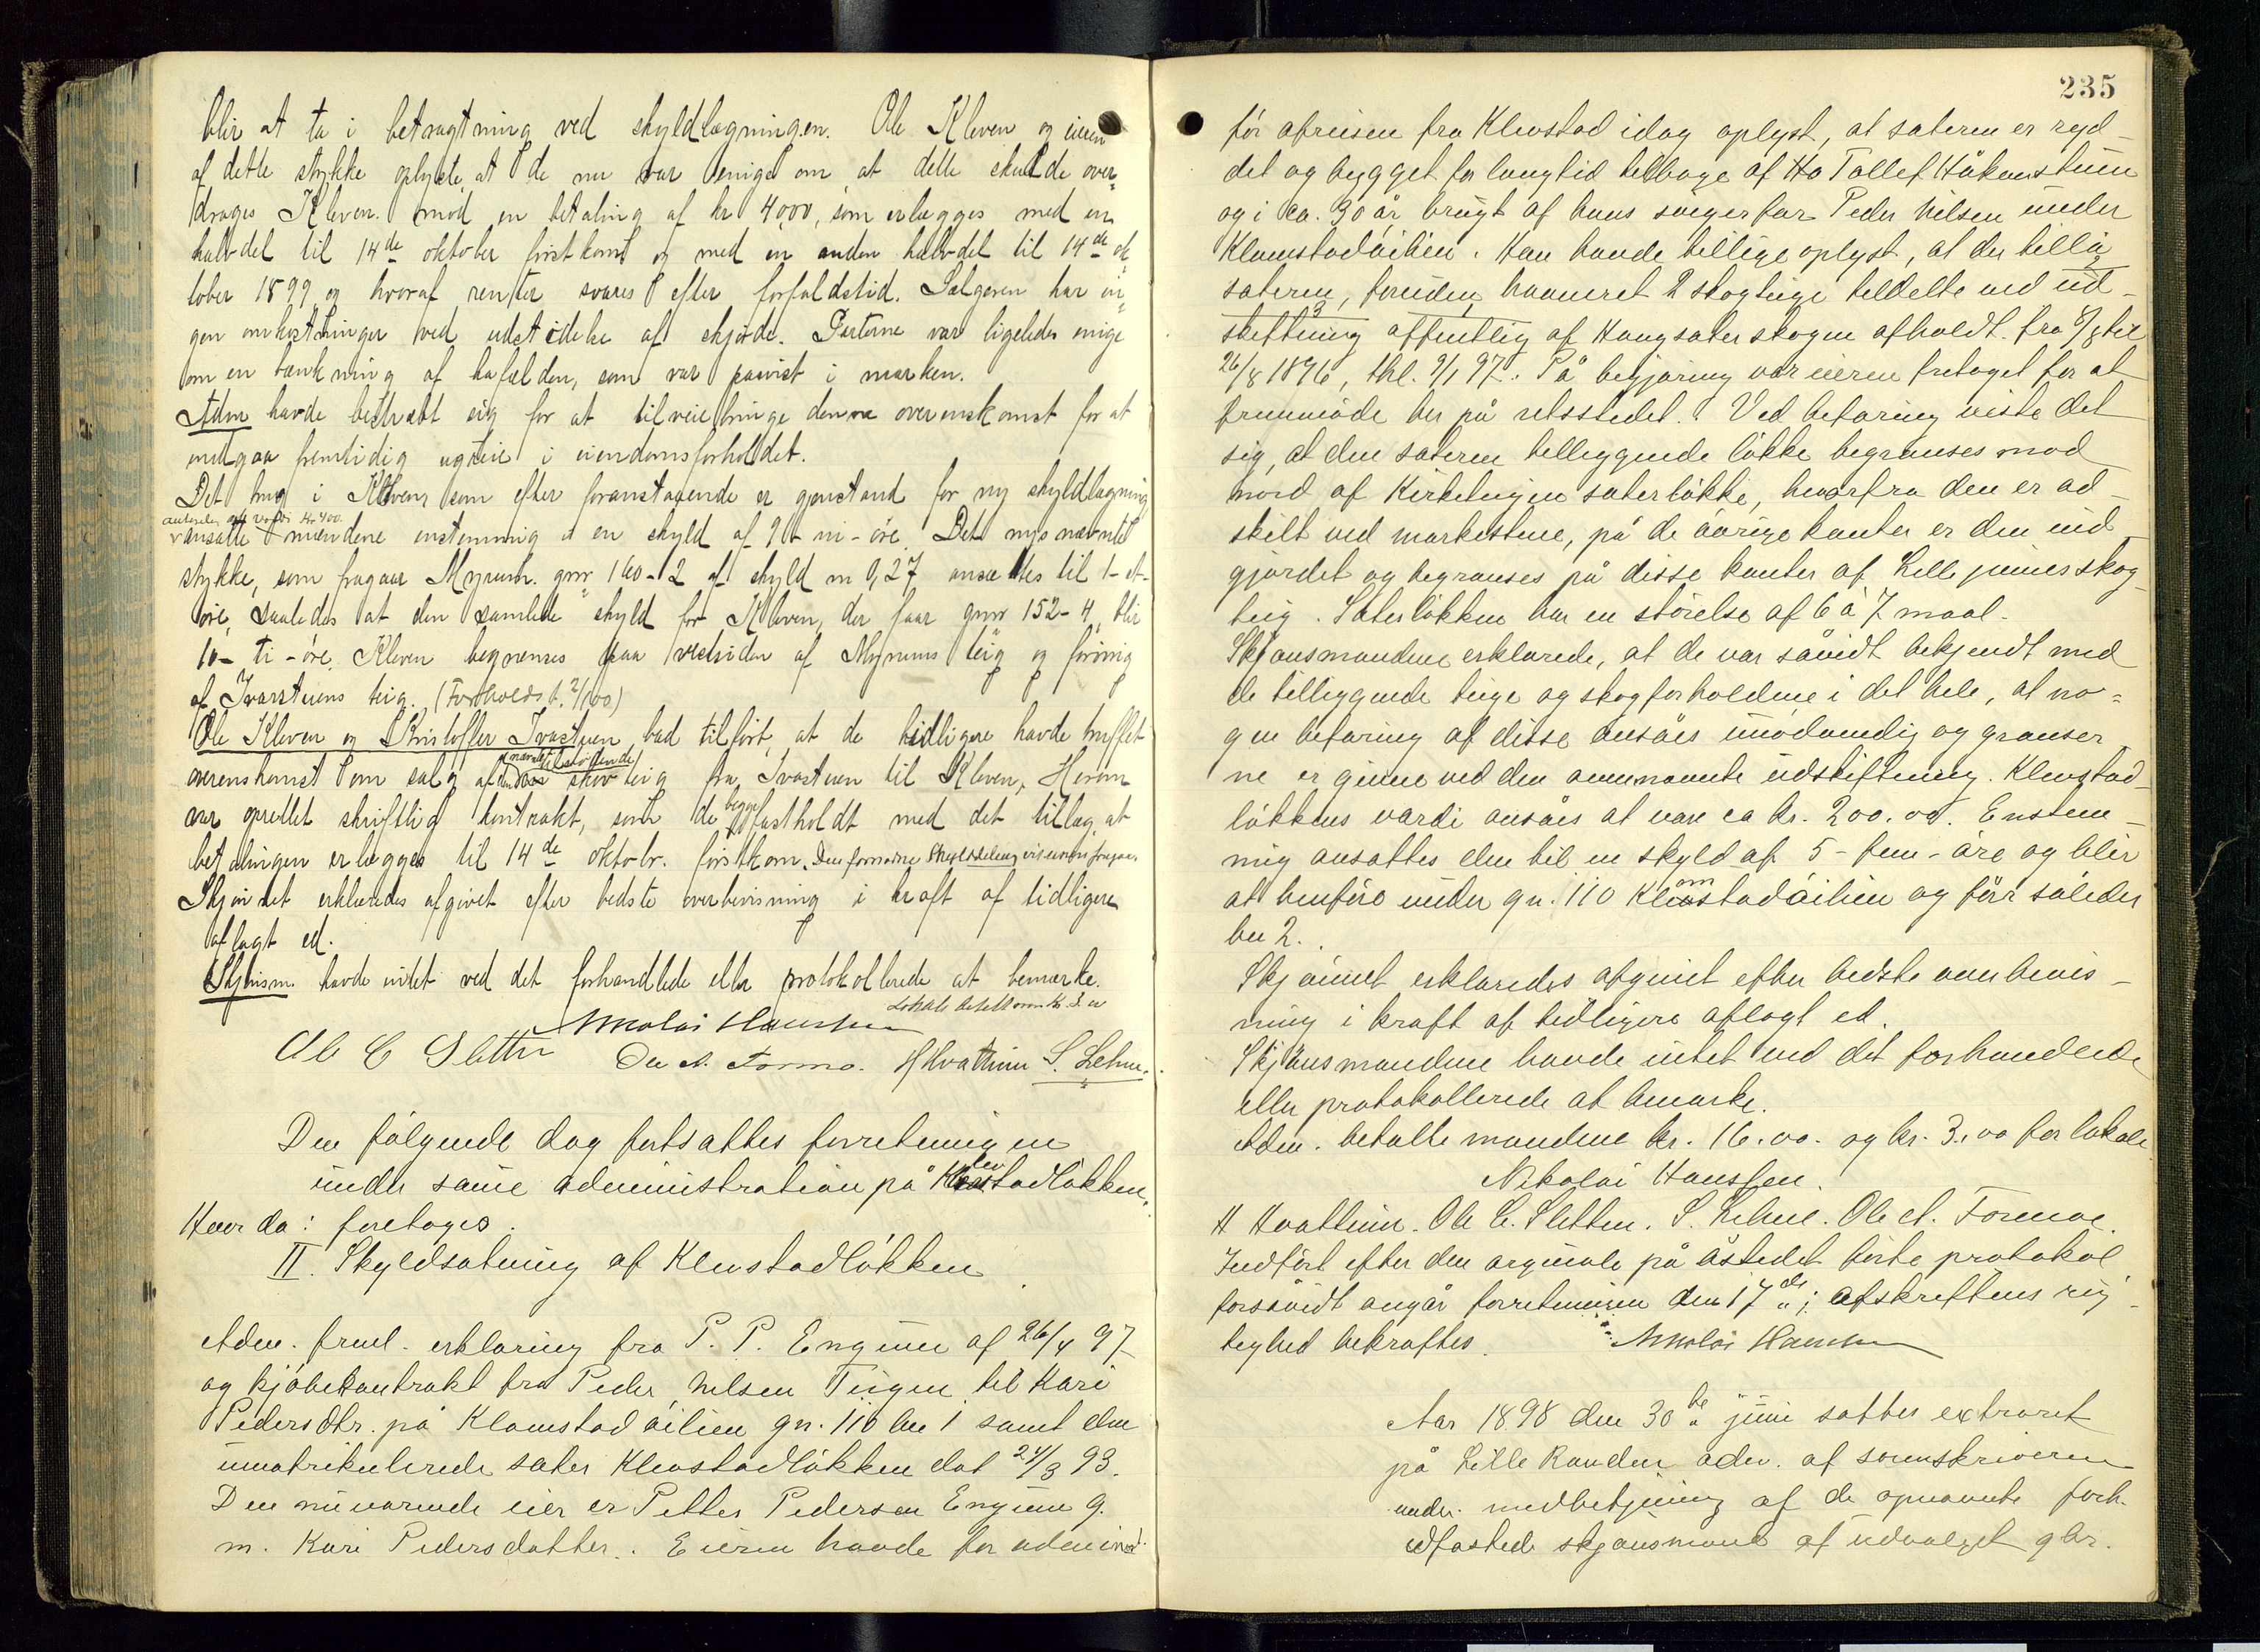 blir at ta i betragtning ved skyldlægningen. Ole Kleven og eieren
af dette stykke oplyste, at de nu var enige om at dette skulde over-
drages Kleven mod en betaling af kr 4000, som erlægges med en
halvdel til 14de oktober førstkomt og med en anden halvdel til 14de ok-
tober 1899 og hvoraf renter svares efter forfaldstid. Sælgeren har in-
gen omkostninger ved udstedelse af skjøde. Parterne var ligeledes enige
om en om havælden, som var paavist i marken.
Adm havde bestræbt sig for at tilveiebringe denne overenskomst for at
undgaa fremtidig ugreie i eiendomsforholdet.
Det brug i Kleven som efter foranstaaende er gjenstand for ny skyldlægning
antagelig værdi kr 400.
ansatte mændene enstemmig til en skyld af 9 - ni - øre. Det nys nævnte
stykke, som fragaar Myrumb. gnr 160-2 af skyld m 0,27 ansættes til 1-et-
øre, saaledes at den samlede skyld for Kleven, der faar gnr 152-4, blir
10- ti - øre. Kleven begrænses paa vestsiden af Myrums teig og forøvrig
af Ivarstuens teig. (Forholdst. 2/100)
Ole Kleven og Kristoffer Ivarstuen bad tilført, at de tidligere havde truffet
nævnte tilstødende
overenskomst om salg af skovteig fra Ivarstuen til Kleven, Herom
begge
var oprettet skriftlig kontrakt, som de fastholdt med det tillæg, at
betalingen erlægges til 14de oktobr. førstkom. Den fornødne Skylddeling
Skjønnet erklæredes afgivet efter bedste overbevisning i kraft af tidligere
aflagt ed.
Skjønsm. havde intet ved det forhandlede eller protokollerede at bemærke.
Lokale betalt om kr. 2.00
Nikolai Hanssen
Ole C Sletten Ole A. Formo. H Hvattum S. Lehne.
Den følgende dag fortsattes forretningen
under samme administration på Klevstadløkken.
Hvor da: foretages.
II. Skyldsætning af Klevstadløkken
Adm. freml. erklæring fra P. P. Engum af 26/4 97
og kjøbekontrakt fra Peder Nilsen Teigen til Kari
Pedersdtr. på Klomstadøilien gn. 110 bn 1 samt den
umatrikulerede sæter Klevstadløkken dat 24/3 93.
Den nuværende eier er Petter Pedersen Engum g.
m. Kari Pedersdatter. Eieren havde for adm ind
235
før afreisen fra Klevstad idag oplyst, at sæteren er ryd-
det og bygget for langtid tilbage af Ho Tollef Håkenstuen
og i ca. 30 år brugt af hans svigerfar Peder Nilsen under
Klomstadøilien. Han havde tillige oplyst, at der tillå
sæteren, foruden havneret 2 skogteige tildelte ved ud-
skiftning offentlig af Haugsæterskogen afholdt fra 3/8 til
26/8 1896, thl. 9/1 97. På begjæring var eieren fritaget for at
fremmøde her på retsstedet. Ved befaring viste det
sig, at den sæteren tilliggende løkke begrænses mod
nord af Kirketeigen sæterløkke, hvorfra den er ad-
skilt ved markestene, på de øvrige kanter er den ind-
gjærdet og begrænses på disse kanter af Lillejunies skog-
teig. Sæterløkken har en størelse af 6 à 7 maal.
Skjønsmændene erklærede, at de var såvidt bekjendt med
de tilliggende teige og skogforholdene i det hele, at no-
gen befaring af disse ansåes unødvendig og grænser
ne er givne ved den ovennævnte udskiftning. Klevstad-
løkkens værdi ansåes at være ca kr. 200.00. Enstem-
mig ansattes den til en skyld af 5 - fem - øre og blir
at henføre under gn. 110 Klomstadøilien og får således
bn 2.
Skjønnet erklæredes afgivet efter bedste overbevis-
ning i kraft af tidligere aflagt ed.
Skjønsmændene havde intet ved det forhandlede
eller protokollerede at bemærke.
Adm. betalte mændene kr. 16.00. og kr. 3.00 for lokale
Nikolai Hanssen.
H Hvattum. Ole C. Sletten. S. Lehne. Ole A. Formoe.
Indført efter den orginale på åstedet førte protokol
forsåvidt angår forretningen den 17de; afskriftens rig-
tighed bekræftes. Nikolai Hanssen
Aar 1898 den 30te juni sattes extraret
på Lille Randen adm. af sorenskriveren
under medbetjening af de opnævnte forh.
edfæstede skjønsmænd af udvalget gbr.